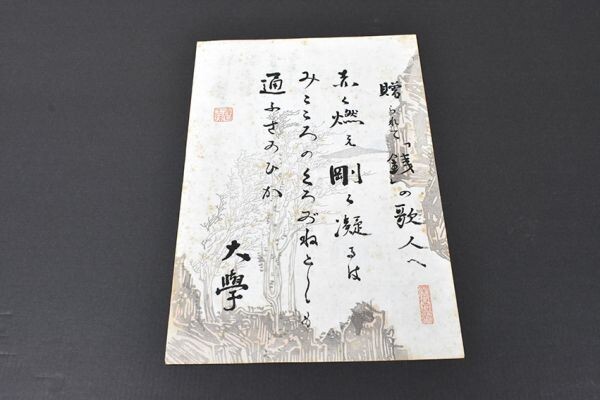 贈られて
の歌人へ
赤く燃え剛く凝るは
みこころのくろがねとしも
通ふさのひか
大學